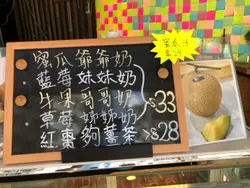 蜜瓜爺爺奶
藍莓妹妹奶
牛果哥哥奶
草莓姊姊奶
$33
紅棗夠薑茶 $28
蜜瓜汁